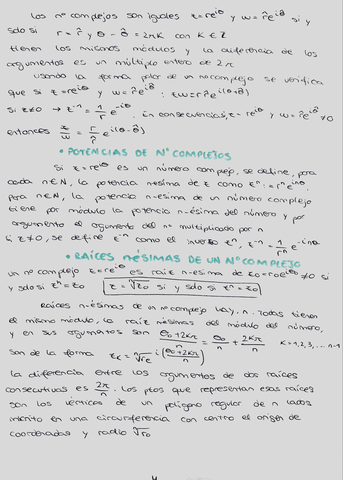 Los nº complejos son iguales z=re^{iθ} y w=r̂e^{iθ̂} si y
sólo si r=r̂ y θ-θ̂=2πK con K∈Z
tienen los mismos módulos y la diferencia de los
argumentos es un múltiplo entero de 2π
usando la forma polar de un nocomplejo se verifica
que si z=re^{iθ} y w=r̂e^{iθ̂}: zw=rr̂e^{i(θ+θ̂)}
si z≠0 → z⁻¹=1/r e^{-iθ}. En consecuencias, z=re^{iθ} y w=r̂e^{iθ̂}≠0
entonces z/w = r/r̂ e^{i(θ-θ̂)}
• POTENCIAS DE Nº COMPLEJOS
Si z=re^{iθ} es un número complejo, se define, para
cada n∈N, la potencia nesima de z como zⁿ:=rⁿe^{inθ}.
para n∈N, la potencia n-esima de un número complejo
tiene por módulo la potencia n-ésima del número y por
argumento el argumento del nº multiplicado por n
si z≠0, se define z⁻ⁿ como el inverso zⁿ, z⁻ⁿ=1/rⁿ e^{-inθ}
• RAÍCES NÉSIMAS DE UN Nº COMPLEJO
un nº complejo z=re^{iθ} es raíz n-esima de z₀=r₀e^{iθ₀}≠0 si
y sólo si zⁿ=z₀ z=ⁿ√z₀ si y sólo si zⁿ=z₀
Raíces n-ésimas de un nºcomplejo hay, n. Todas tienen
el mismo módulo, la raíz nésimas del módulo del número,
y en sus argumentos son θ₀+2Kπ/n = θ₀/n + 2Kπ/n K=1,2,3,... n-1
son de la forma z_K=ⁿ√r e^{i(θ₀+2Kπ/n)}
la diferencia entre los argumentos de dos raíces
consecutivas es 2π/n. Los ptos que representan esas raíces
son los vértices de un polígono regular de n lados
inscrito en una circunsferencia con centro el origen de
coordenadas y radio ⁿ√r₀